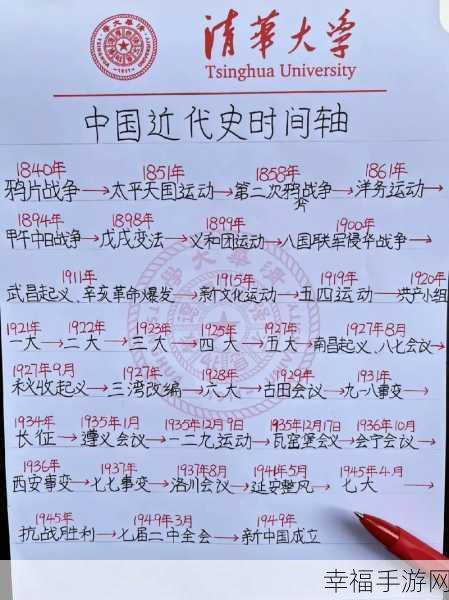 清華大学
Tsinghua University
中国近代史时间轴
1840年 1851年 1858年 1861年
鸦片战争→太平天国运动→第二次鸦片战争→洋务运动→
1894年 1898年 1899年 1900年
甲午中日战争→戊戌变法→义和团运动→八国联军侵华战争→
1911年 1915年 1919年 1920年
武昌起义、辛亥革命爆发→新文化运动→五四运动→共产小组
1921年 1922年 1923年 1925年 1927年 1927年8月
一大→二大→三大→四大→五大→南昌起义、八七会议→
1927年9月 1927年 1928年 1929年 1931年
秋收起义→三湾改编→六大→古田会议→九一八事变→
1934年 1935年1月 1935年12月9日 1935年12月17日 1936年10月
长征→遵义会议→一二九运动→瓦窑堡会议→会宁会议→
1936年 1937年 1937年8月 1941年5月 1945年4月
西安事变→七七事变→洛川会议→延安整风→七大→
1945年 1949年3月 1949年
抗战胜利→七届二中全会→新中国成立
幸福手游网